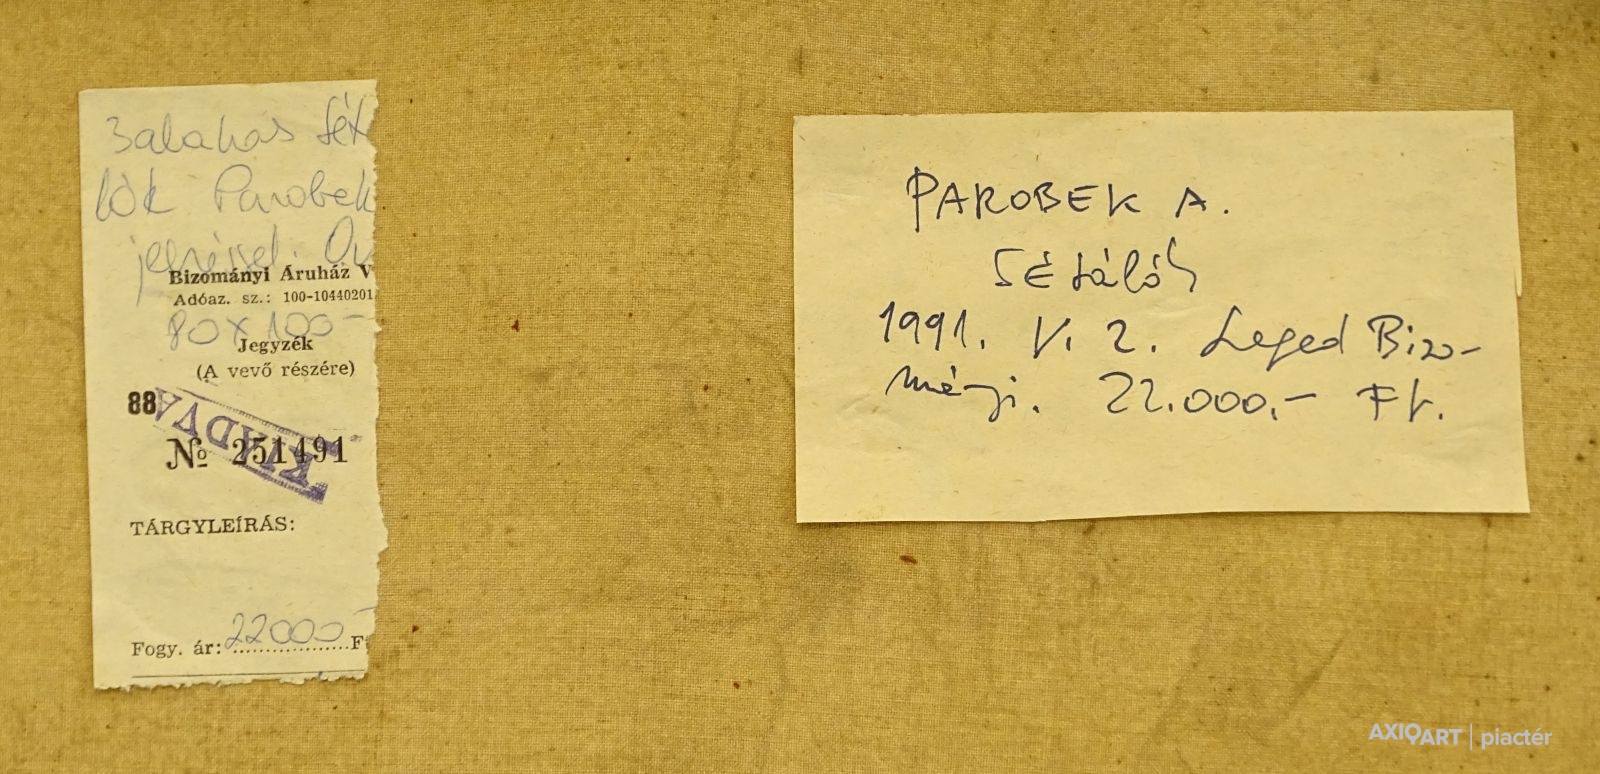 3alakos sét
lók Parobek
jelzéssel. Ov
Bizományi Áruház V
Adóaz. sz.: 100-10440201
80 x 100-
Jegyzék
(A vevő részére)
88
KIADVA
№ 251491
TÁRGYLEÍRÁS:
Fogy. ár: 22000 F
PAROBEK A.
Sétálók
1991. V. 2. Szeged Bizo-
mányi. 22.000.- Ft.
AXIOART | piactér